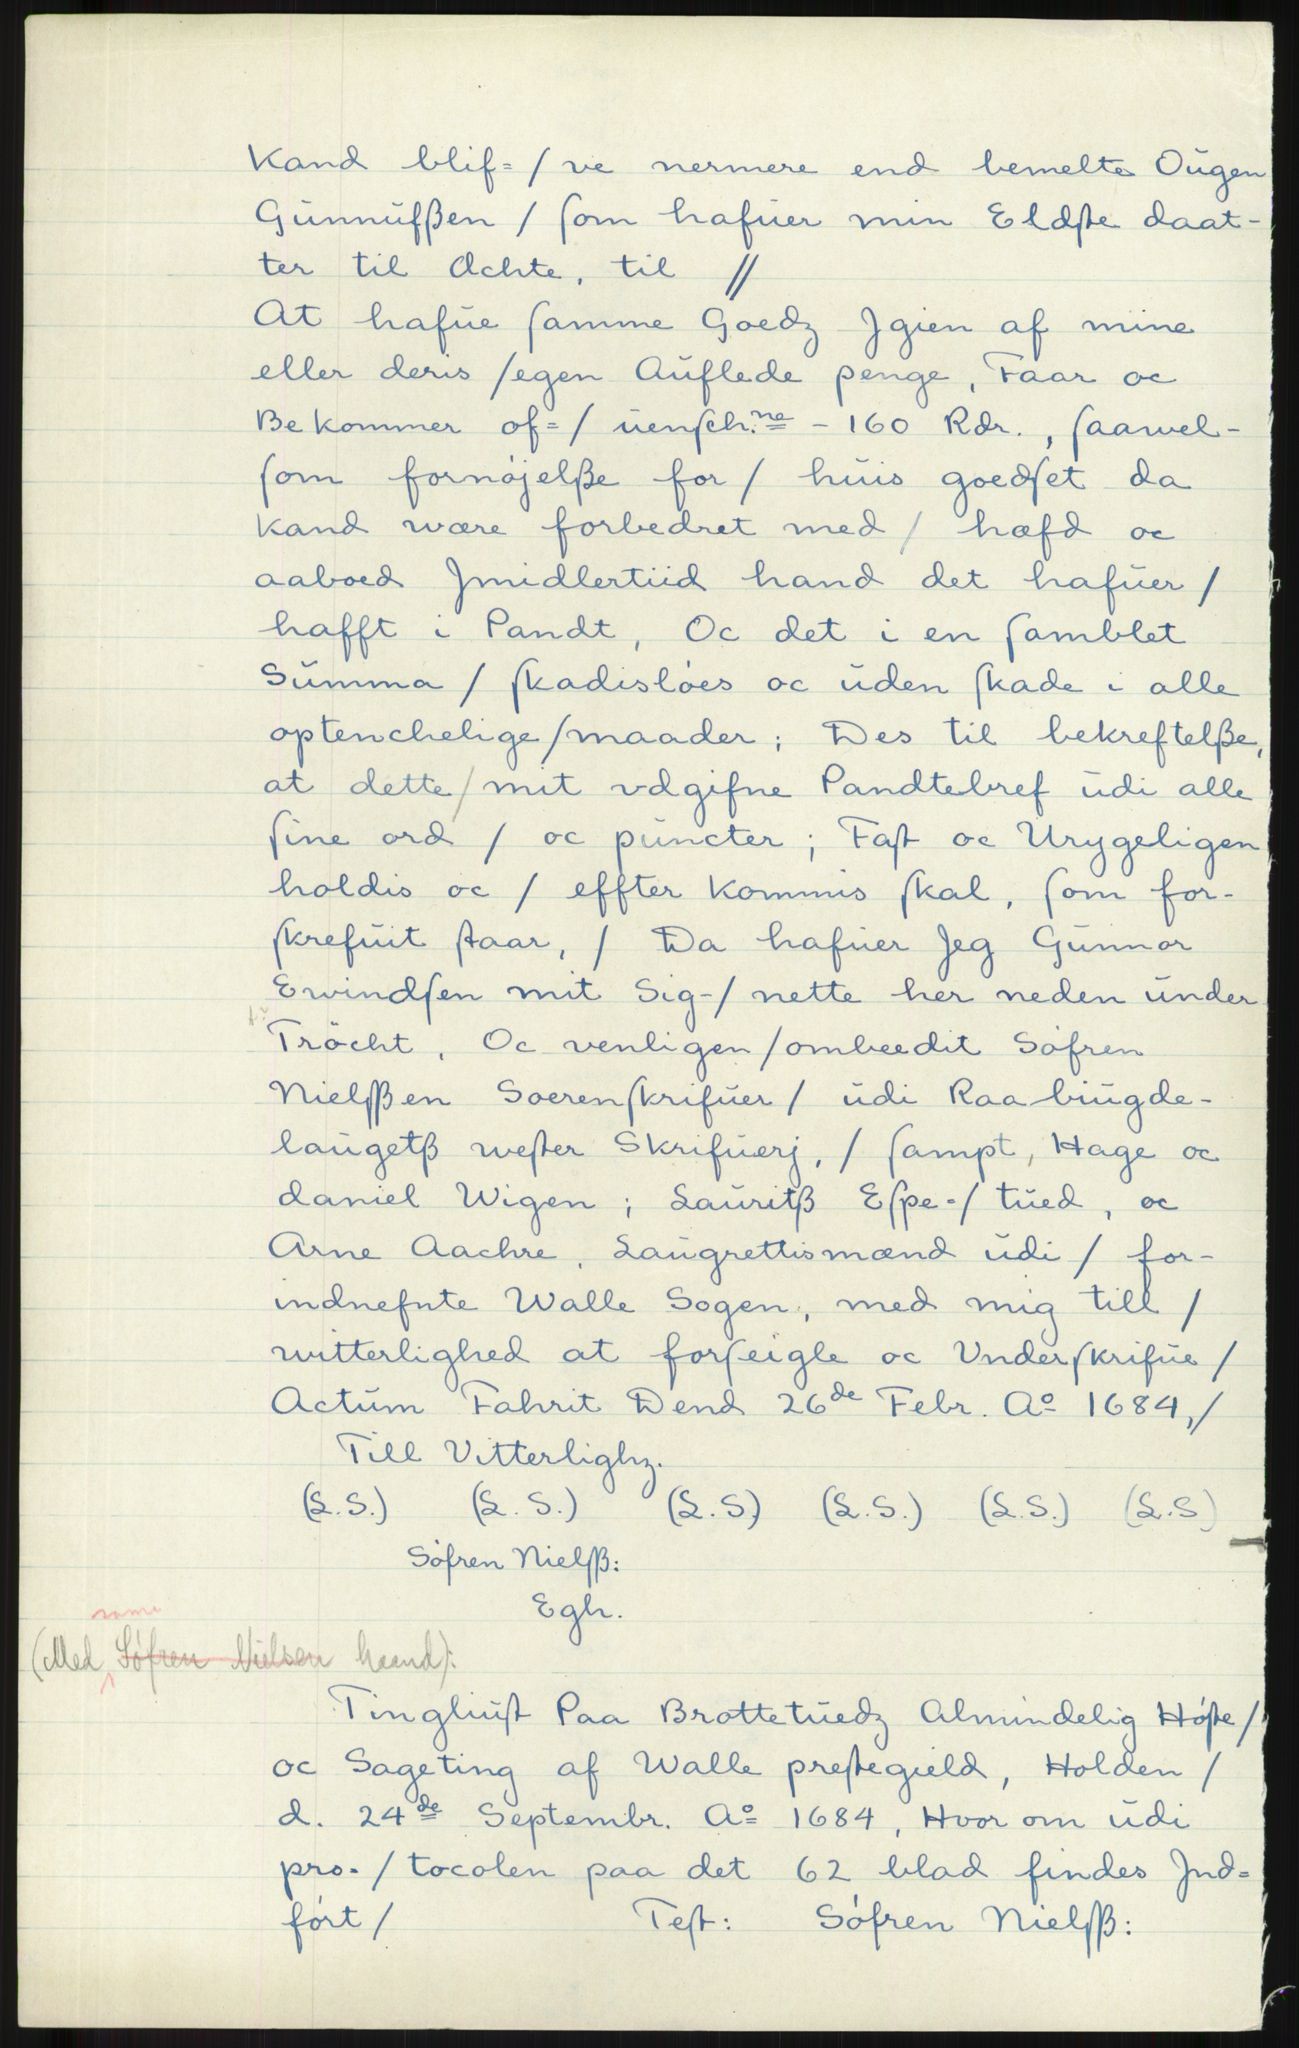 Kand blif= / ve nermere end bemelte Oŭgen
Gŭnnŭfßen / ſom hafŭer min Eldſte daat-
ter til Achte, til //
At hafŭe ſamme Goedz Jgien af mine
eller deris /egen Aŭflede penge, Faar oc
Bekommer of= / ŭenſch.ne - 160 Rdr., ſaavel-
ſom fornöjelße for / hŭis goedſet da
kand være forbedret med / hæfd oc
aaboed Jmidlertiid hand det hafŭer /
hafft i Pandt, Oc det i en ſamblet
Sŭmma / ſkadislöes oc ŭden ſkade i alle
optenchelige/maader; Des til bekreftelße,
at dette/ mit vdgifne Pandtebref ŭdi alle
ſine ord / oc pŭncter; Faſt oc Urygeligen
holdis oc / effter kommis ſkal, ſom for-
ſkrefŭit ſtaar, / Da hafŭer Jeg Gŭnnor
Ewindſen mit Sig-/ nette her neden ŭnder
Tröcht, Oc venligen/ombeedit Söfren
Nielſßen Soerenſkrifŭer / ŭdi Raabiŭgde-
laŭgetß weſter Skrifŭerj, / ſampt, Hage oc
daniel Wigen; Laŭritß Eſpe-/ tŭed, oc
Arne Aachre, Laŭgrettismænd ŭdi / for-
indnefnte Walle Sogen, med mig till /
witterlighed at forſeigle oc Vnderſkrifŭe /
Actŭm Fahrit Dend 26de Febr. Ao 1684,/
Till Vitterlighz.
(L.S.) (L.S.) (L.S) (L.S.) (L.S.) (L.S)
Söfren Nielſß:
Egh.
samme
(Med Söfren Nielsen haand):
Tingliŭſt Paa Brottetŭedz Almindelig Höſte /
oc Sageting af Walle preſtegield, Holden /
d. 24de Septembr. Ao 1684, Hvor om ŭdi
pro- / tocolen paa det 62 blad findes Jnd=
fört / Teſt: Söfren Nielſß: